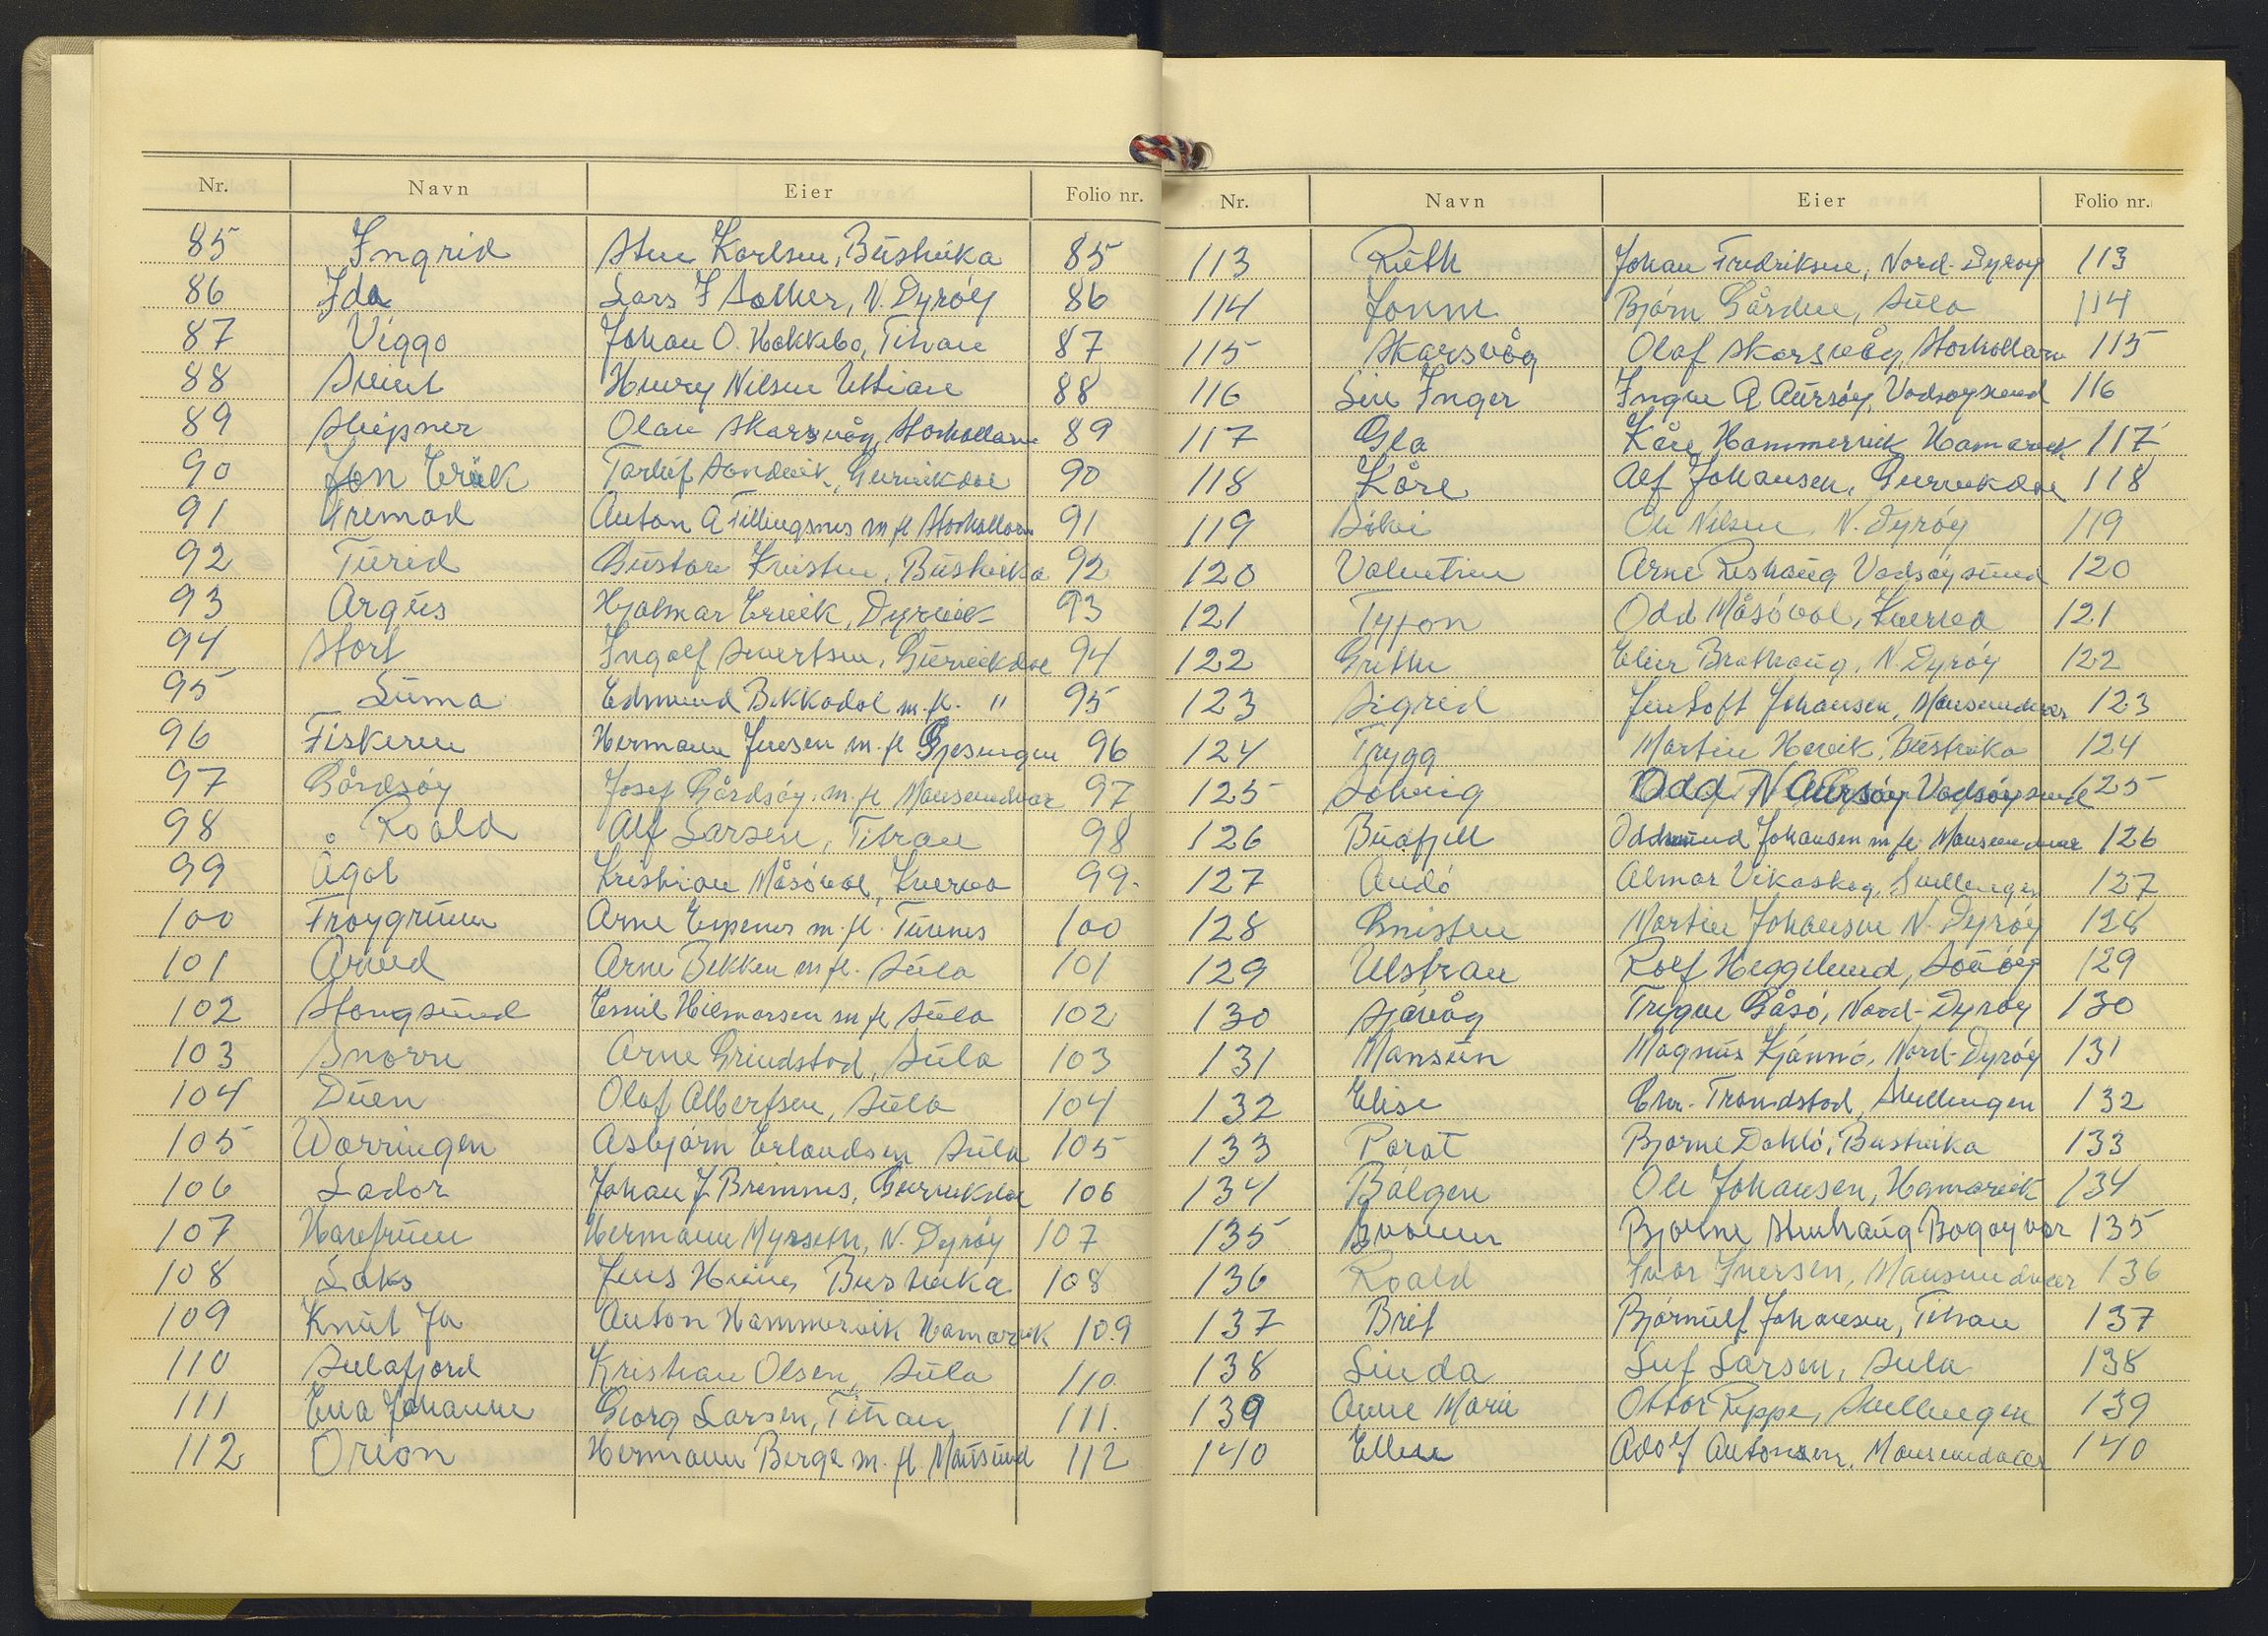 Nr. Navn Eier Folio nr.
85 Ingrid Sten Karlsen, Bustvika 85
86 Ida Lars J Solher, N. Dyrøy 86
87 Viggo Johan O. Hokkebo, Titran 87
88 Svint Henry Nilsen Uttian 88
89 Sleipner Olav Skarsvåg, Storhallaren 89
90 Jon Erik Torleif Sandvik, Gurvikdal 90
91 Fremad Anton A Fillingsnes m fl Storhallaren 91
92 Turid Gustav Kristen, Bustvika 92
93 Argus Hjalmar Ervik, Dyrvik 93
94 Stort Ingolf Sivertsen, Gurvikdal 94
95 Luma Edmund Bekkadal m. fl. " 95
96 Fiskeren Hermann Jensen m. fl Gjæsingen 96
97 Gårdsøy Josef Gårdsøy. m. fl Mausundvær 97
98 Roald Alf Larsen, Titran 98
99 Ågot Kristian Måsøval, Kverva 99.
100 Frøygrunn Arne Espenes m. fl. Tuvnes 100
101 Arvid Arne Bekken m fl. Sula 101
102 Stongsund Emil Hilmarsen m fl Sula 102
103 Snorre Arne Grindstad, Sula 103
104 Duen Olaf Albertsen, Sula 104
105 Worringen Asbjørn Erlandsen Sula 105
106 Lador Johan J. Bremnes, Gurvikdal 106
107 Havbrunn Hermann Myrseth, N. Dyrøy 107
108 Laks Jens Bustvika 108
109 Knut Jo Anton Hammervik Hamarvik 109
110 Sulafjord Kristian Olsen, Sula 110
111 Eva Johanne Georg Larsen, Titran 111.
112 Orion Hermann Berge m. fl Mausund 112
Nr. Navn Eier Folio nr.
113 Ruth Johan Fredriksen, Nord-Dyrøy 113
114 Jonni Bjørn Gården, Sula 114
115 Skarsvåg Olaf Skarsvåg, Storhallaren 115
116 Liv Inger Ingvar A Aursøy, Vadsøysund 116
117 Gla Kåre Hammervik Hamarvik 117
118 Kåre Alf Johansen, Gurvikdal 118
119 Silvi Ole Nilsen N. Dyrøy 119
120 Valentine Arne Reshaug Vadsøysund 120
121 Tyfon Odd Måsøval, Kverva 121
122 Grethe Elier Brathaug, N. Dyrøy 122
123 Sigrid Jentoft Johansen, Mausundvær 123
124 Trygg Martin Hevik, Bustvika 124
125 Solveig Odd N Aursøy Vadsøysund 125
126 Buafjell Oddmund Johansen m fl. Mausundvær 126
127 Audø Almar Vikaskag, Svellingen 127
128 Gnisten Martin Johansen N. Dyrøy 128
129 Ulstran Rolf Heggelund, Sørøy 129
130 Sjøvåg Trygve Gåsø, Nord-Dyrøy 130
131 Mansun Magnus Kjønnø, Nord-Dyrøy 131
132 Elise Chr. Tromdstad, Svellingen 132
133 Parat Bjarne Dahlø, Bustvika 133
134 Bølgen Ole Johansen, Hamarvik 134
135 Svanen Bjarne Stenhaug Bogøyvær 135
136 Roald Ivar Iversen, Mausundvær 136
137 Brit Bjørnulf Johansen, Titran 137
138 Linda Leif Larsen, Sula 138
139 Anne Marie Ottar Reppe, Svellingen 139
140 Ellen Adolf Antonsen, Mausundvær 140